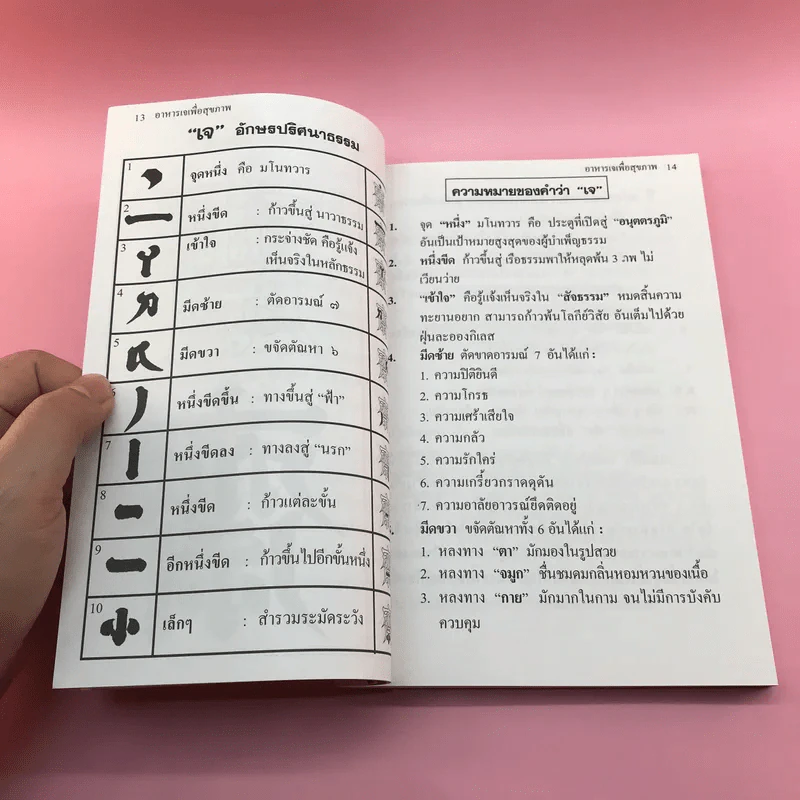 13 อาหารเจเพื่อสุขภาพ
"เจ" อักษรปริศนาธรรม
1 จุดหนึ่ง คือ มโนทวาร
2 หนึ่งขีด : ก้าวขึ้นสู่ นาวาธรรม
3 เข้าใจ : กระจ่างชัด คือรู้แจ้ง
เห็นจริงในหลักธรรม
4 มีดซ้าย : ตัดอารมณ์ ๗
5 มีดขวา : ขจัดตัณหา ๖
6 หนึ่งขีดขึ้น : ทางขึ้นสู่ "ฟ้า"
7 หนึ่งขีดลง : ทางลงสู่ "นรก"
8 หนึ่งขีด : ก้าวแต่ละขั้น
9 อีกหนึ่งขีด : ก้าวขึ้นไปอีกขั้นหนึ่ง
10 小 เล็กๆ : สำรวมระมัดระวัง
อาหารเจเพื่อสุขภาพ 14
ความหมายของคำว่า "เจ"
1. จุด "หนึ่ง" มโนทวาร คือ ประตูที่เปิดสู่ "อนุตตรภูมิ"
อันเป็นเป้าหมายสูงสุดของผู้บำเพ็ญธรรม
2. หนึ่งขีด ก้าวขึ้นสู่ เรือธรรมพาให้หลุดพ้น 3 ภพ ไม่
เวียนว่าย
3. "เข้าใจ" คือรู้แจ้งเห็นจริงใน "สัจธรรม" หมดสิ้นความ
ทะยานอยาก สามารถก้าวพ้นโลกีย์วิสัย อันเต็มไปด้วย
ฝุ่นละอองกิเลส
4. มีดซ้าย ตัดขาดอารมณ์ 7 อันได้แก่ :
1. ความปิติยินดี
2. ความโกรธ
3. ความเศร้าเสียใจ
4. ความกลัว
5. ความรักใคร่
6. ความเกรี้ยวกราดดุดัน
7. ความอาลัยอาวรณ์ยึดติดอยู่
มีดขวา ขจัดตัณหาทั้ง 6 อันได้แก่ :
1. หลงทาง "ตา" มักมองในรูปสวย
2. หลงทาง "จมูก" ชื่นชมดมกลิ่นหอมหวนของเนื้อ
3. หลงทาง "กาย" มักมากในกาม จนไม่มีการบังคับ
ควบคุม